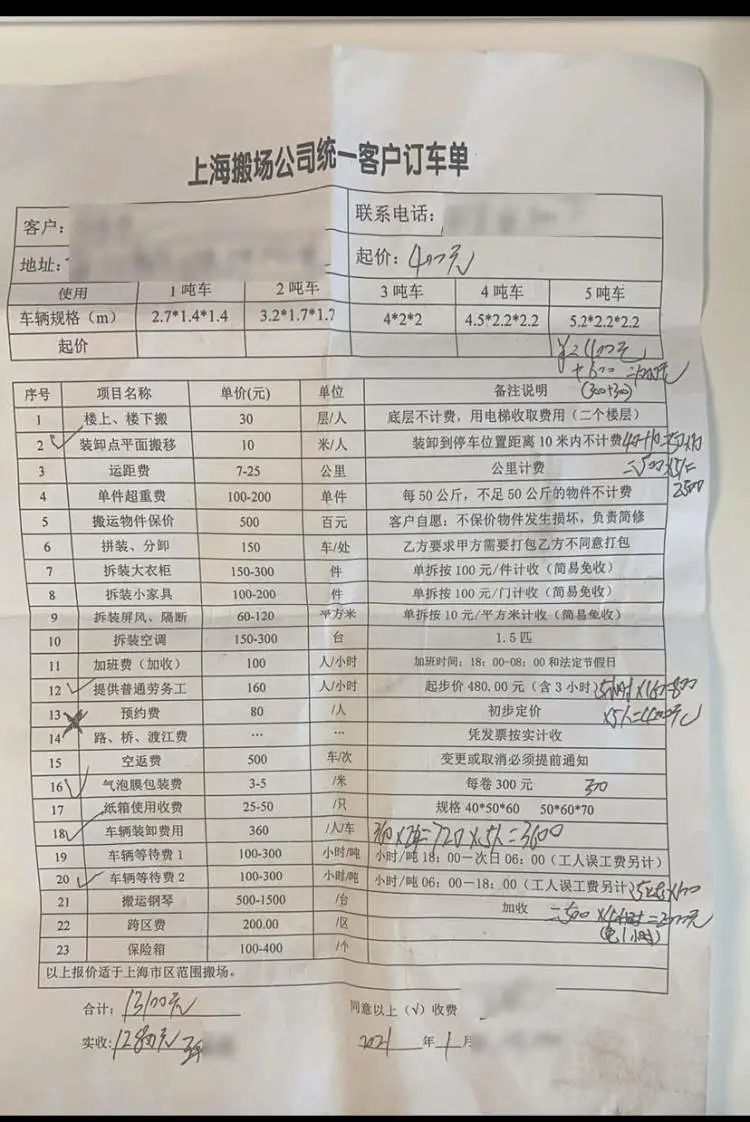 上海搬场公司统一客户订车单
客户: 联系电话:
地址: 起价: 400元
使用 1 吨车 2 吨车 3 吨车 4 吨车 5 吨车
车辆规格（m） 2.7*1.4*1.4 3.2*1.7*1.7 4*2*2 4.5*2.2*2.2 5.2*2.2*2.2
起价 ¥2400元
+600
(300+300)
序号 项目名称 单价(元) 单位 备注说明
1 楼上、楼下搬 30 层/人 底层不计费，用电梯收取费用（二个楼层）
2 √ 装卸点平面搬移 10 米/人 装卸到停车位置距离 10 米内不计费
=500×5人=
2500
3 运距费 7-25 公里 公里计费
4 单件超重费 100-200 单件 每 50 公斤，不足 50 公斤的物件不计费
5 搬运物件保价 500 百元 客户自愿：不保价物件发生损坏，负责简修
6 拼装、分卸 150 车/处 乙方要求甲方需要打包乙方不同意打包
7 拆装大衣柜 150-300 件 单拆按 100 元/件计收（简易免收）
8 拆装小家具 100-200 件 单拆按 100 元/门计收（简易免收）
9 拆装屏风、隔断 60-120 平方米 单拆按 10 元/平方米计收（简易免收）
10 拆装空调 150-300 台 1.5 匹
11 加班费（加收） 100 人/小时 加班时间：18：00-08：00 和法定节假日
12 √ 提供普通劳务工 160 人/小时 起步价 480.00 元（含 3 小时） 5小时×160=800
×5人=4000元
13 预约费 80 /人 初步定价
14 路、桥、渡江费 … … 凭发票按实计收
15 空返费 500 车/次 变更或取消必须提前通知
16 √ 气泡膜包装费 3-5 /米 每卷 300 元 300
17 纸箱使用收费 25-50 /只 规格 40*50*60 50*60*70
18 √ 车辆装卸费用 360 /人/车 360×2车=720×5人=3600
19 车辆等待费 1 100-300 小时/吨 小时/吨 18：00—次日 06：00（工人误工费另计）
20 √ 车辆等待费 2 100-300 小时/吨 小时/吨 06：00—18：00（工人误工费另计） ×100
21 搬运钢琴 500-1500 /台 加收 =500×4小时=2000元
(免1小时)
22 跨区费 200.00 /区
23 保险箱 100-400 /个
以上报价适于上海市区范围搬场。
合计: 13100元 同意以上（√）收费
实收: 12800元 2021 年 1 月